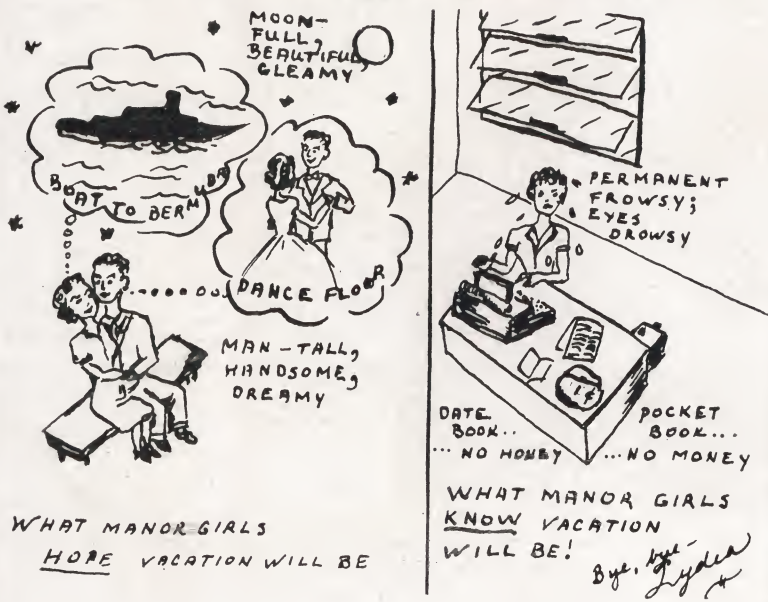 MOON-
FULL,
BEAUTIFUL,
GLEAMY
BOAT TO BERMUDA
DANCE FLOOR
MAN-TALL,
HANDSOME,
DREAMY
WHAT MANOR GIRLS
HOPE VACATION WILL BE
PERMANENT
FROWSY;
EYES
DROWSY
DATE
BOOK..
...NO HONEY
POCKET
BOOK...
...NO MONEY
WHAT MANOR GIRLS
KNOW VACATION
WILL BE!
Bye, bye-
Lydia